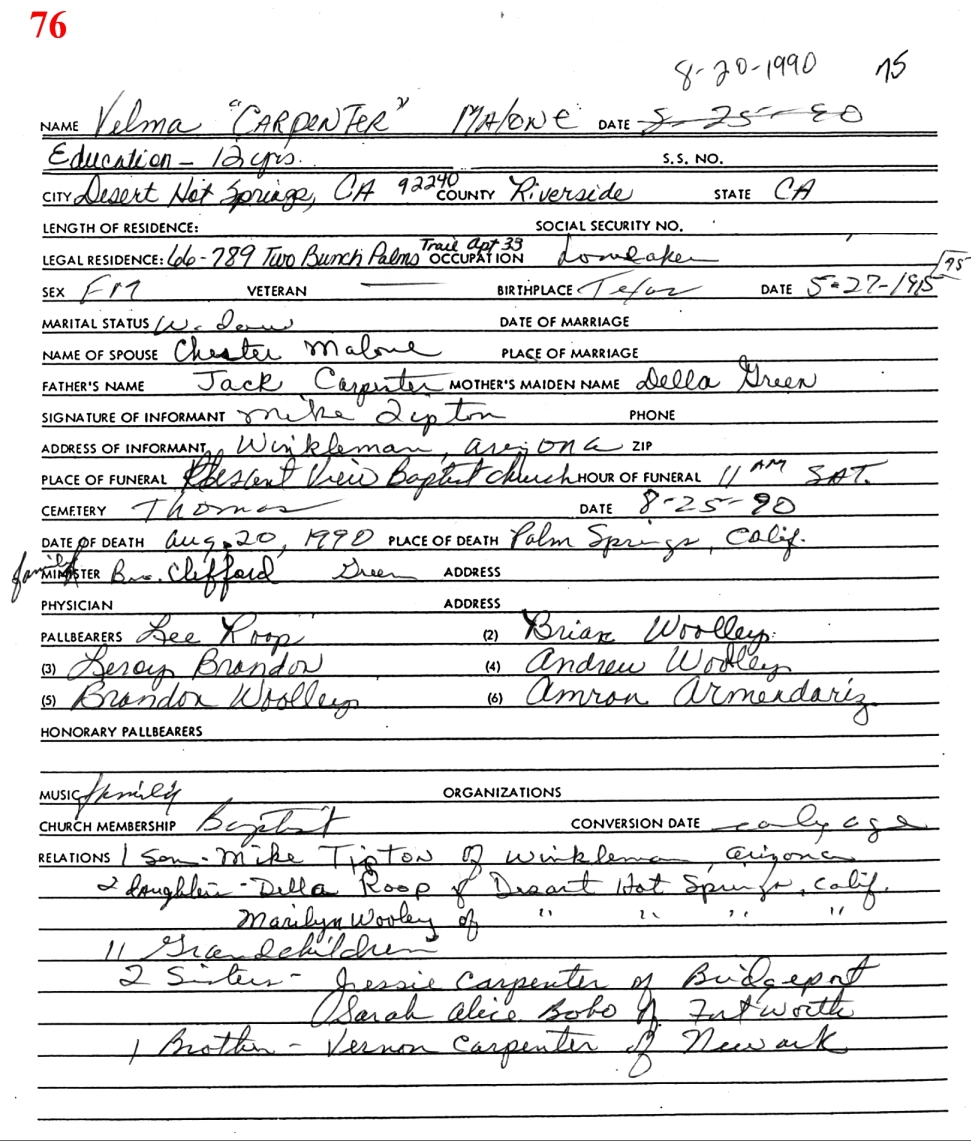 76
8-20-1990 75
NAME Velma "CARPENTER" MALONE DATE 8-25-90
Education - 12 yrs. S.S. NO.
CITY Desert Hot Springs, CA 92240 COUNTY Riverside STATE CA
LENGTH OF RESIDENCE: SOCIAL SECURITY NO.
LEGAL RESIDENCE: 66-789 Two Bunch Palms Trail Apt 33 OCCUPATION
SEX FM VETERAN — BIRTHPLACE Texas DATE 5-27-1915 75
MARITAL STATUS Widow DATE OF MARRIAGE
NAME OF SPOUSE Chester Malone PLACE OF MARRIAGE
FATHER'S NAME Jack Carpenter MOTHER'S MAIDEN NAME Della Green
SIGNATURE OF INFORMANT Mike Tipton PHONE
ADDRESS OF INFORMANT Winkleman, Arizona ZIP
PLACE OF FUNERAL Pleasant View Baptist Church HOUR OF FUNERAL 11 AM SAT.
CEMETERY Thomas DATE 8-25-90
DATE OF DEATH Aug. 20, 1990 PLACE OF DEATH Palm Springs, Calif.
family MINISTER Bro. Clifford Green ADDRESS
PHYSICIAN ADDRESS
PALLBEARERS Lee Roop (2) Brian Woolley
(3) Leroy Brandon (4) Andrew Woolley
(5) Brandon Woolley (6) Amron Armendariz
HONORARY PALLBEARERS
MUSIC family ORGANIZATIONS
CHURCH MEMBERSHIP Baptist CONVERSION DATE early age
RELATIONS 1 Son - Mike Tipton of Winkleman, Arizona
2 daughters - Della Roop of Desart Hot Springs, Calif.
Marilyn Wooley of " " " "
11 Grandchildren
2 Sisters - Jessie Carpenter of Bridgeport
Sarah Alice Bobo of Fort Worth
1 Brother - Vernon Carpenter of Newark